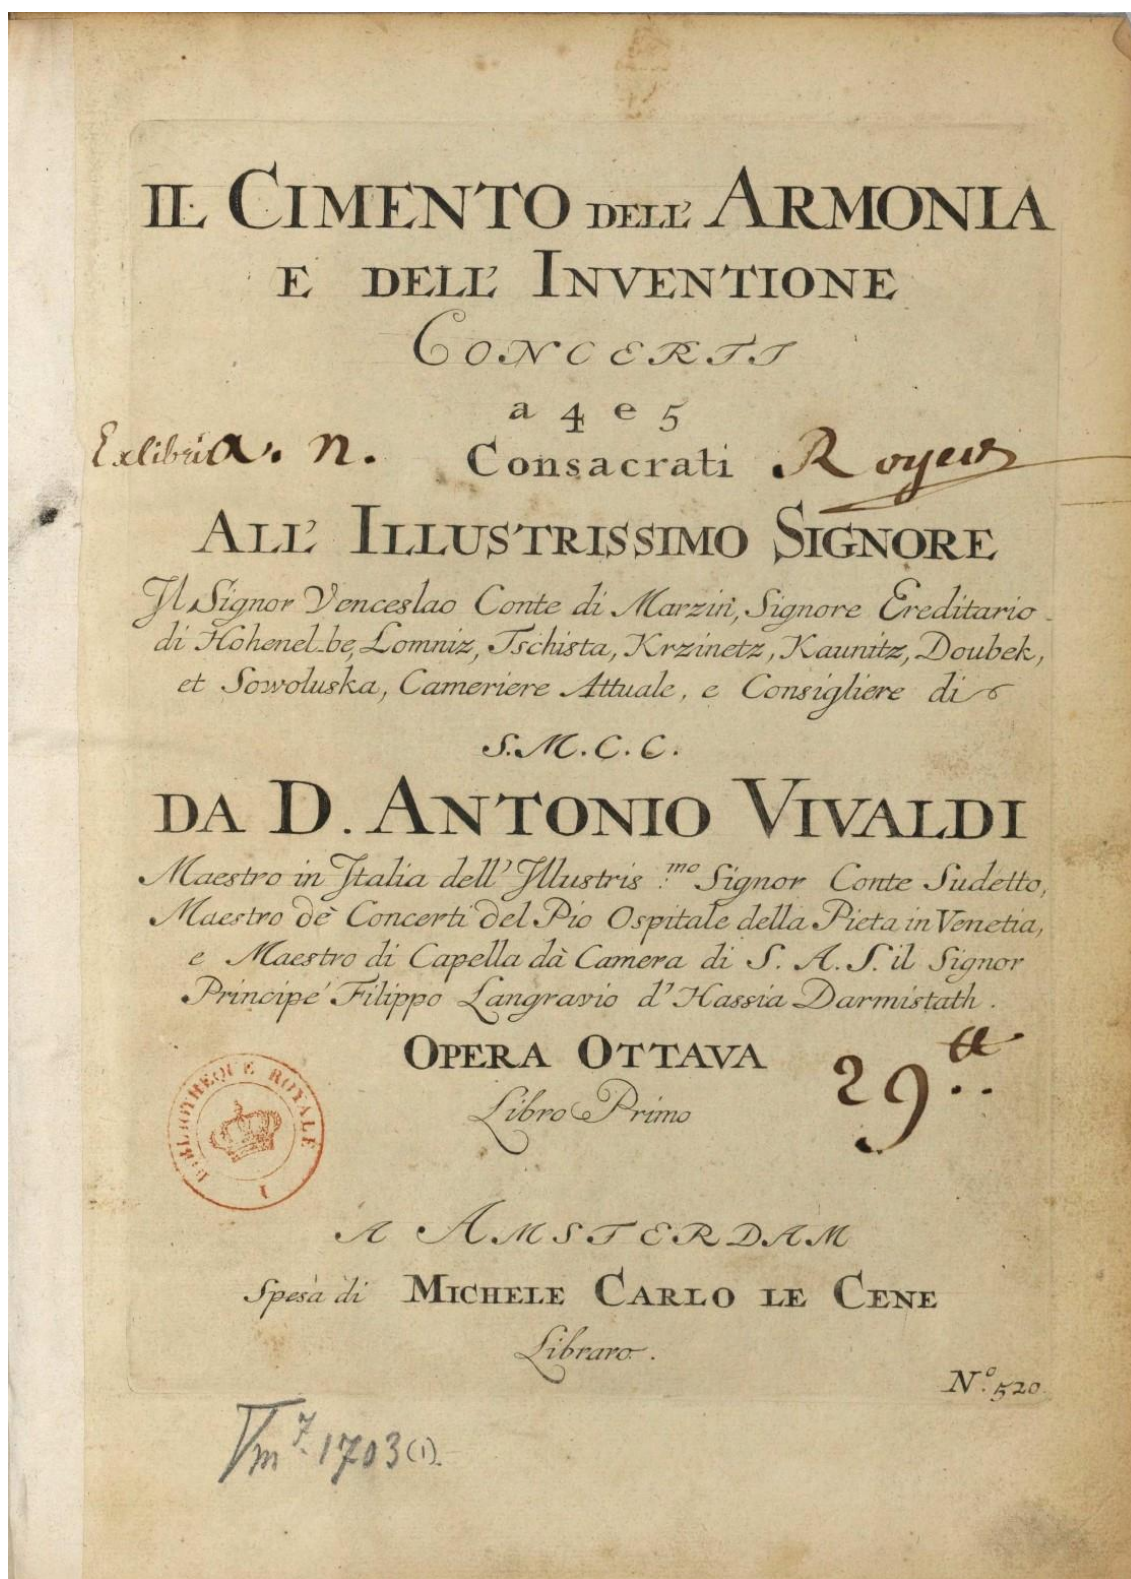 IL CIMENTO DELL' ARMONIA
E DELL' INVENTIONE
CONCERTI
a 4 e 5
Exlibris a. n. Consacrati Royer
ALL' ILLUSTRISSIMO SIGNORE
Il Signor Venceslao Conte di Marzin, Signore Ereditario
di Hohenel-be, Lomniz, Tschista, Krzinetz, Kaunitz, Doubek,
et Sowoluska, Cameriere Attuale, e Consigliere di
S.M.C.C.
DA D. ANTONIO VIVALDI
Maestro in Italia dell' Illustris.mo Signor Conte Sudetto,
Maestro dè Concerti del Pio Ospitale della Pieta in Venetia,
e Maestro di Capella dà Camera di S. A. S. il Signor
Principe Filippo Langravio d' Hassia Darmistath.
OPERA OTTAVA
29.a
Libro Primo
BIBLIOTHEQUE ROYALE
I
A AMSTERDAM
Spesa di MICHELE CARLO LE CENE
Libraro.
N.o 520
Vm 7. 1703 (1).